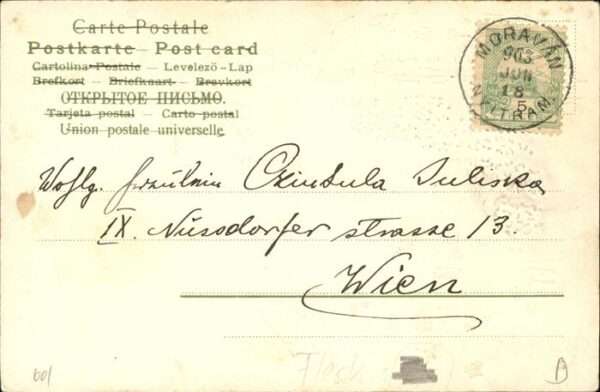 Carte Postale
Postkarte - Post card
Cartolina Postale - Levelező-Lap
Brefkort - Briefkaart - Brevkort
ОТКРЫТОЕ ПИСЬМО.
Tarjeta postal - Carto postal
Union postale universelle
MORAVÁN
903
JUN
18
5
NYITRA M.
Wohlg. Fräulein Czintula Juliska
IX. Nussdorfer strasse 13.
Wien
60/
B